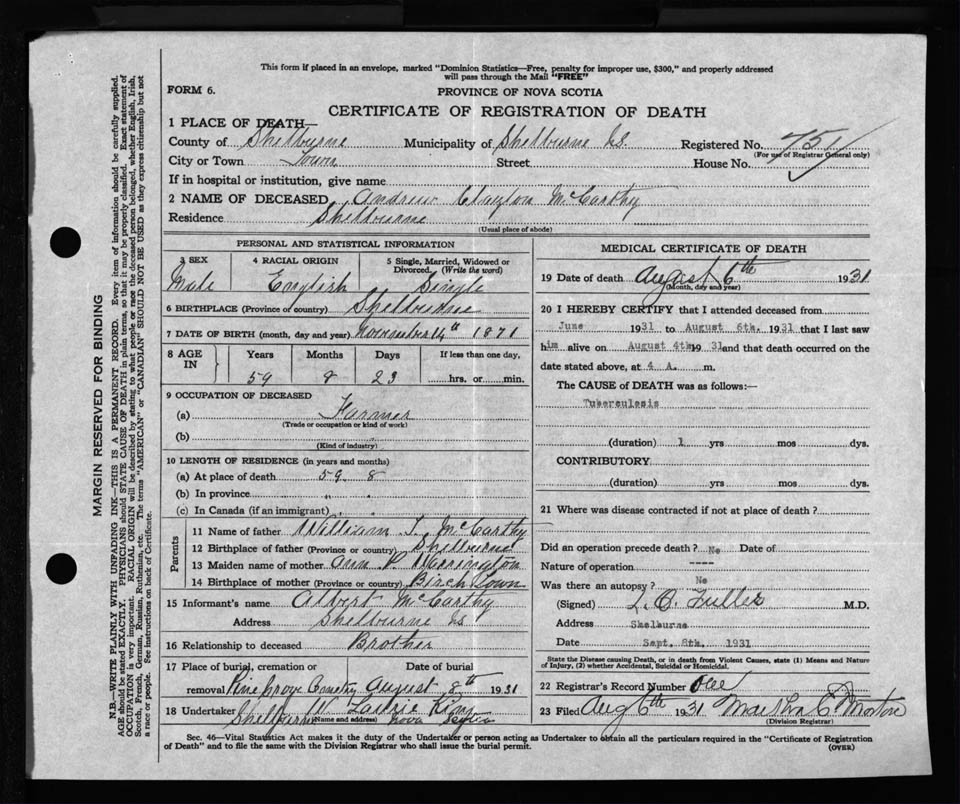 This form if placed in an envelope, marked "Dominion Statistics—Free, penalty for improper use, $300," and properly addressed
will pass through the Mail "FREE"
FORM 6.
PROVINCE OF NOVA SCOTIA
CERTIFICATE OF REGISTRATION OF DEATH
1 PLACE OF DEATH—
County of Shelburne Municipality of Shelburne Registered No. 751
(For use of Registrar General only)
City or Town Town Street House No.
If in hospital or institution, give name
2 NAME OF DECEASED Andrew Clayton McCarthy
Residence Shelburne
(Usual place of abode)
PERSONAL AND STATISTICAL INFORMATION
3 SEX 4 RACIAL ORIGIN 5 Single, Married, Widowed or Divorced. (Write the word)
Male English Single
6 BIRTHPLACE (Province or country) Shelburne
7 DATE OF BIRTH (month, day and year) November 14th 1871
8 AGE IN Years Months Days If less than one day,
59 8 23 hrs. or min.
9 OCCUPATION OF DECEASED
(a) Farmer
(Trade or occupation or kind of work)
(b)
(Kind of industry)
10 LENGTH OF RESIDENCE (in years and months)
(a) At place of death 59 8
(b) In province " "
(c) In Canada (if an immigrant) " "
Parents
11 Name of father William T. McCarthy
12 Birthplace of father (Province or country) Shelburne
13 Maiden name of mother Ann P
14 Birthplace of mother (Province or country) Birch Town
15 Informant's name Albert McCarthy
Address Shelburne
16 Relationship to deceased Brother
17 Place of burial, cremation or Date of burial
removal Pine Grove Cemetery August 8th 1931
18 Undertaker W Laurie King
Shelburne Nova Scotia
(Name and address)
MEDICAL CERTIFICATE OF DEATH
19 Date of death August 6th 1931
(Month, day and year)
20 I HEREBY CERTIFY that I attended deceased from
June 1931 to August 6th. 1931 that I last saw
him alive on August 4th 1931 and that death occurred on the
date stated above, at 4 A. m.
The CAUSE of DEATH was as follows:—
Tuberculosis
(duration) 1 yrs mos dys.
CONTRIBUTORY
(duration) yrs mos dys.
21 Where was disease contracted if not at place of death?
Did an operation precede death? No Date of
Nature of operation ----
Was there an autopsy? No
(Signed) L. O. Fuller M.D.
Address Shelburne
Date Sept. 8th. 1931
State the Disease causing Death, or in death from Violent Causes, state (1) Means and Nature
of Injury, (2) whether Accidental, Suicidal or Homicidal.
22 Registrar's Record Number
23 Filed Aug 6th 1931 Martha C Morton
(Division Registrar)
Sec. 46—Vital Statistics Act makes it the duty of the Undertaker or person acting as Undertaker to obtain all the particulars required in the "Certificate of Registration
of Death" and to file the same with the Division Registrar who shall issue the burial permit.
(OVER)
MARGIN RESERVED FOR BINDING
N.B.—WRITE PLAINLY WITH UNFADING INK—THIS IS A PERMANENT RECORD. Every item of information should be carefully supplied.
AGE should be stated EXACTLY. PHYSICIANS should STATE CAUSE OF DEATH in plain terms, so that it may be properly classified. Exact statement of
OCCUPATION is very important. RACIAL ORIGIN will be described by stating to what people or race the deceased person belonged, whether English, Irish,
Scotch, French, German, Russian, Ruthenian, etc. The terms "AMERICAN" or "CANADIAN" SHOULD NOT BE USED as they express citizenship but not
a race or people. See instructions on back of Certificate.